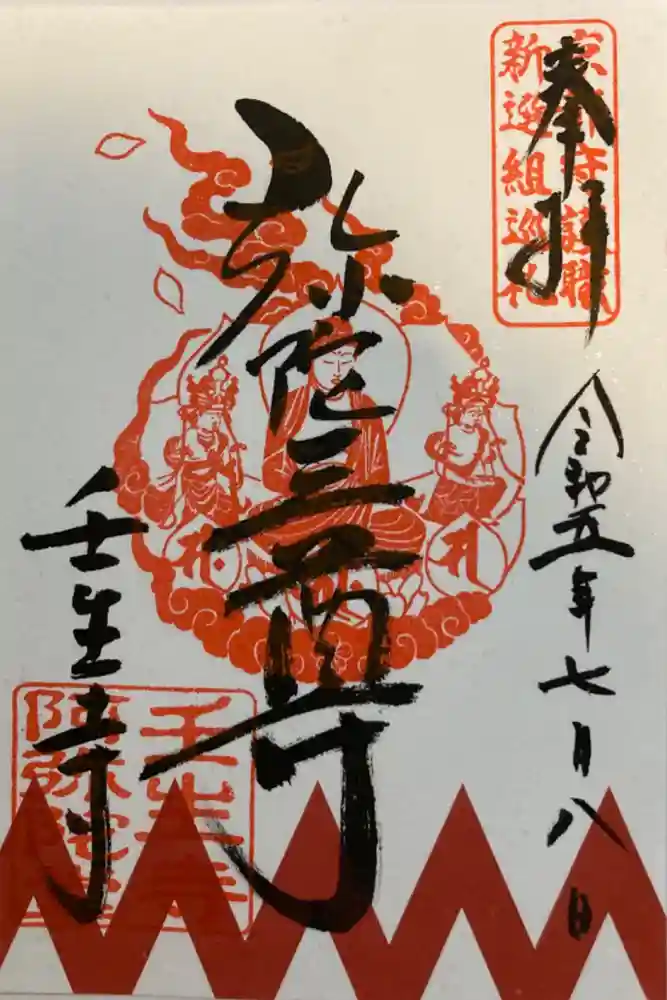 奉拝
京都守護職
新選組巡礼
令和五年七月八日
弥陀三尊
壬生寺
壬生寺
阿弥陀堂
札
札